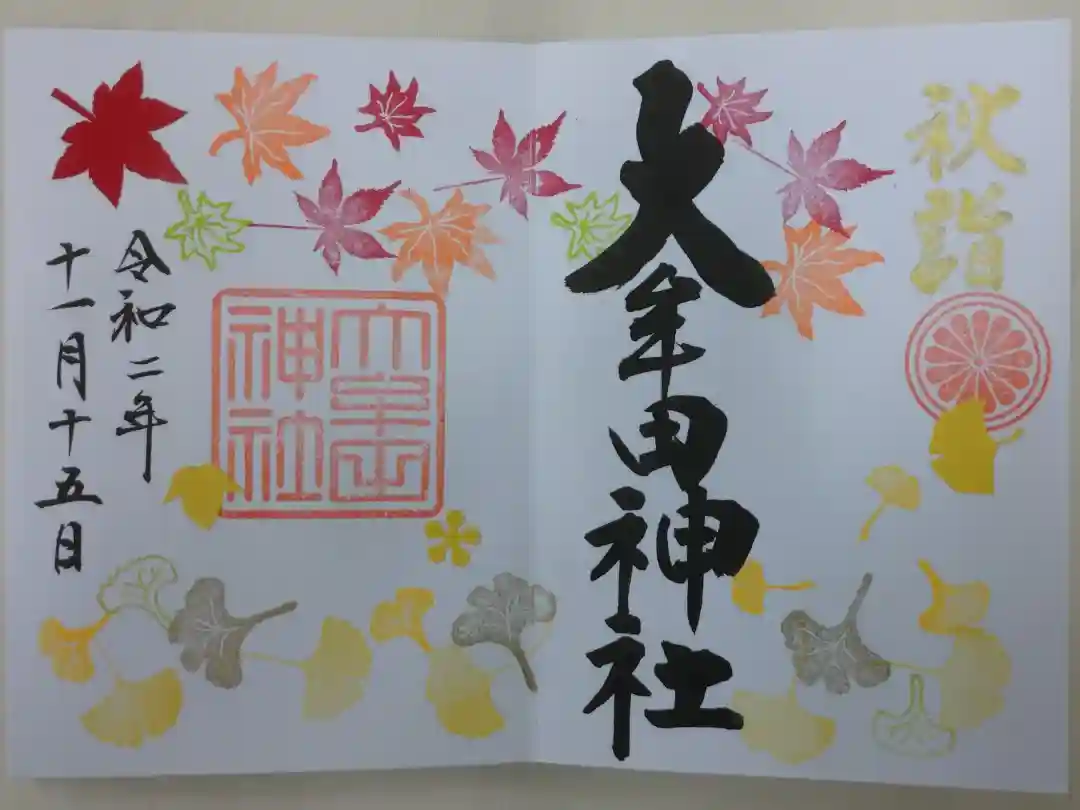 秋詣
大牟田神社
大牟田
神社
令和二年
十一月十五日